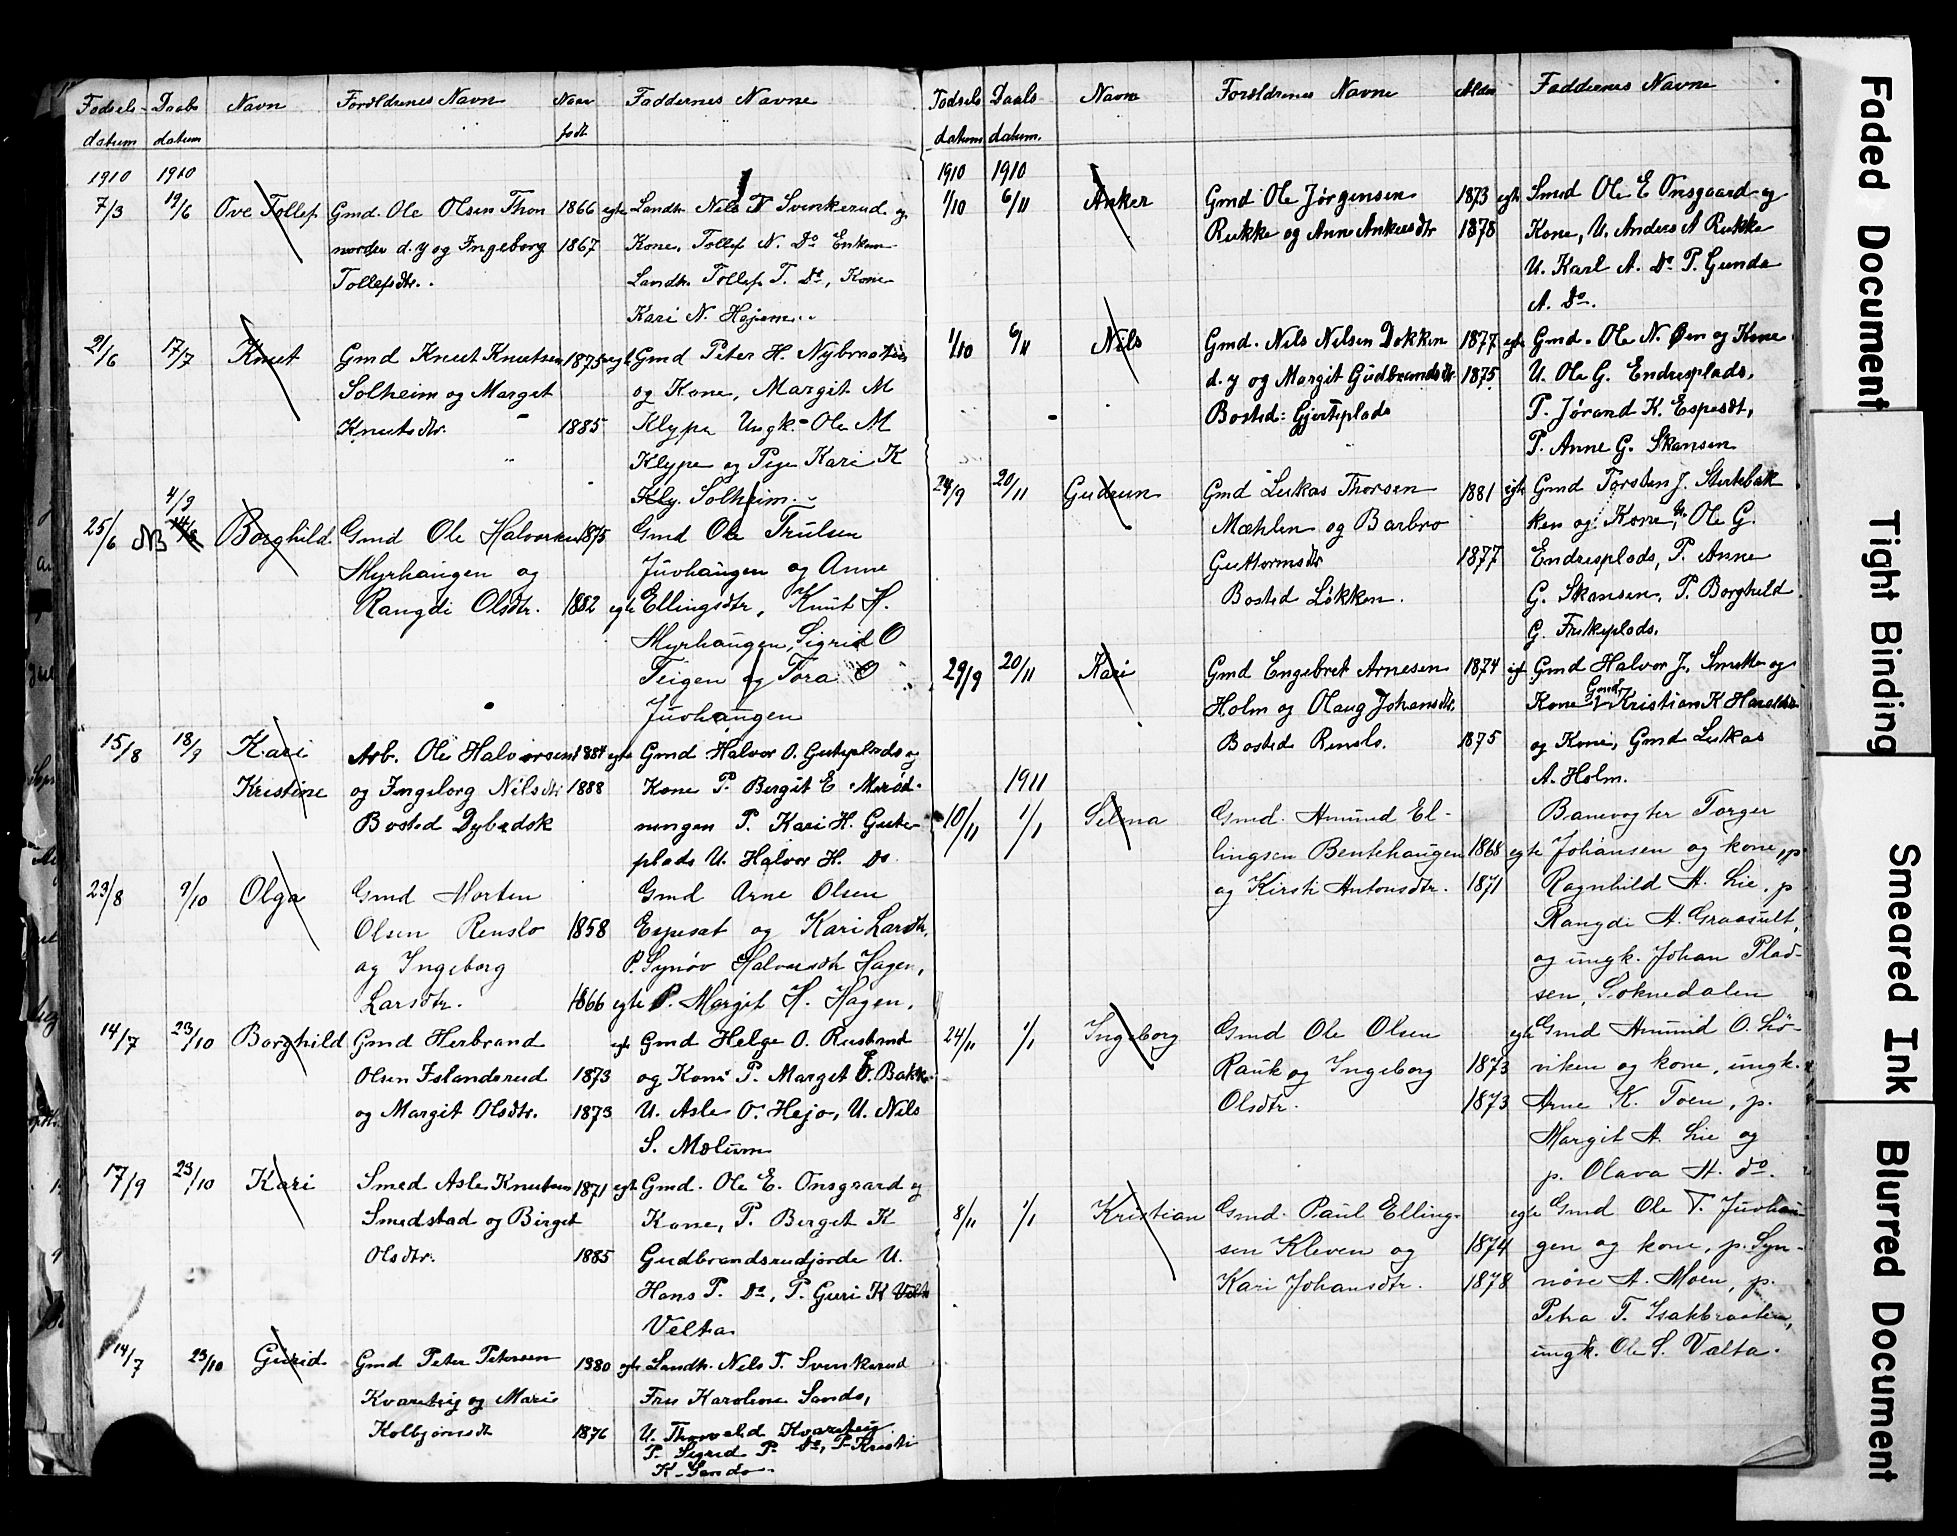 Fødsels- Daabs Navn Forældrenes Navn Naar Faddernes Navne
datum datum født
1910 1910
7/3 19/6 Ove Tollef Gmd. Ole Olsen Thon 1866 egte Landh. Nils T Svenkerud og
nordre d.y og Ingeborg 1867 Kone, Tollef N. Do Enkem
Tollefsdtr. Landh. Tollef T. Do, Kone
Kari N. Hejem
21/6 17/7 Knut Gmd Knut Knutsen 1875 egt Gmd Peter H. Nybraaten
Solheim og Marget og Kone, Margit M
Knutsdtr. 1885 Klype Ungk. Ole M
Klype og Pige Kari K
4/9 Kly. Solheim
25/6 NB 14/8 Borghild Gmd Ole Halvorsen 1875 Gmd Ole Trulsen
Myrhaugen og Juvhaugen og Anne
Rangdi Olsdtr. 1882 egte Ellingsdtr, Knut H.
Myrhaugen, Sigrid O
Teigen og Tora O
Juvhaugen
15/8 18/9 Kari Arb. Ole Halvorsen 1884 egte Gmd Halvor O. Guteplads og
Kristine og Ingeborg Nilsdtr 1888 Kone P. Bergit E.
Bosted Dybedok ningen P. Kari H. Gute-
plads U. Halvor H. Do
23/8 9/10 Olga Gmd Morten Gmd Arne Olsen
Olsen Renslo 1858 Espeset og Kari Larsdtr,
og Ingeborg P. Synøv Halvorsdtr Hagen,
Larsdtr. 1866 egte P. Margit H. Hagen,
14/7 23/10 Borghild Gmd Herbrand egte Gmd Helge O. Rustand
Olsen Islandsrud 1873 og Kone P. Marget E. Bakke
og Margit Olsdtr. 1873 U. Asle O. Hejo, U. Nils
S. Mølum
17/9 23/10 Kari Smed Asle Knutsen 1871 egte Gmd. Ole E. Onsgaard og
Smedstad og Birget Kone, P. Berget K
Olsdtr. 1885 Gudbrandsrudjorde U.
Hans P. Do, P. Guri K Velta
Velta
14/7 23/10 Gurid Gmd Peter Petersen 1880 egte Landh. Nils T. Svenkerud
Kvarteig og Marie Fru Karoline Sando,
Kolbjørnsdtr 1876 U. Thorvald Kvarteig
P. Sigrid P. Do, P. Kristi
K. Sando
Fødsels Daabs Navn Forældrenes Navne Alder Faddernes Navne
datum datum.
1910 1910
1/10 6/11 Anker Gmd Ole Jørgensen 1873 egte Smed Ole E Onsgaard og
Rukke og Anne Ankersdtr 1878 Kone, U. Anders A Rukke
U. Karl A. Do P. Gunda
A. Do.
1/10 6/11 Nils Gmd. Nils Nilsen Dokken 1877 egte Gmd. Ole N. Øen og Kone
d.y og Margit Gudbrandsdtr 1875 U. Ole G. Endresplads,
Bosted: Gjerteplads P. Jørand K. Espesdt,
P. Anne G. Skansen
24/9 20/11 Gudrun Gmd Lukas Thorsen 1881 egte Gmd Torsten J. Stertebak
Mæhlen og Barbro ken og Kone, U. Ole G.
Guttormsdtr 1877 Endresplads, P. Anne
Bosted Løkken. G. Skansen, P. Borghild
G. Friskeplads.
29/9 20/11 Kari Gmd Engebret Arnesen 1874 egte Gmd Halvor J. Smette og
Holm og Olaug Johansdtr. Kone Gmd Kristian K
Bosted Renslo. 1875 og Kone, Gmd Lukas
1911 A. Holm.
10/11 1/1 Selma Gmd. Amund El- Banevogter Torger
lingsen Bentehaugen 1868 egte Johansen og kone, p
og Kirsti Antonsdtr. 1871 Ragnhild A. Lie, p
Rangdi A. Graasult,
og ungk. Johan Plad-
sen, Soknedalen
24/11 1/1 Ingeborg Gmd Ole Olsen egte Gmd Amund O. Lø-
Rauk og Ingeborg 1873 viken og kone, ungk.
Olsdtr. 1873 Arne K. Toen, p.
Margit A. Lie og
p. Olava A. do.
8/11 1/1 Kristian Gmd. Paul Elling- egte Gmd Ole T. Juvhau-
sen Kleven og 1874 gen og kone, p. Syn-
Kari Johansdtr. 1878 nøve A. Moen, p.
Petra T. Isakbraaten,
ungk. Ole S. Valta.
Faded Document
Tight Binding
Smeared Ink
Blurred Document